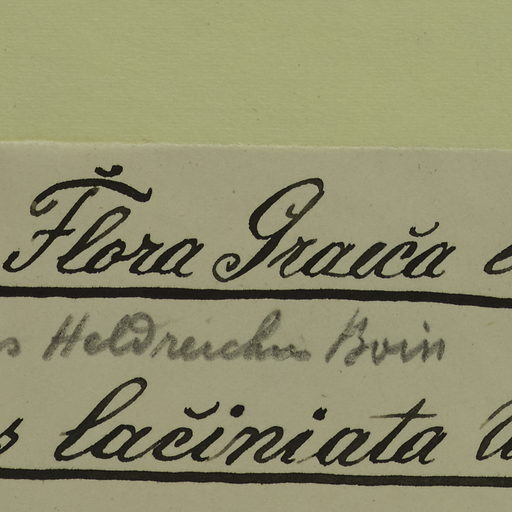 Flora Graeča
s Heldreichii Boiss
s lačiniata